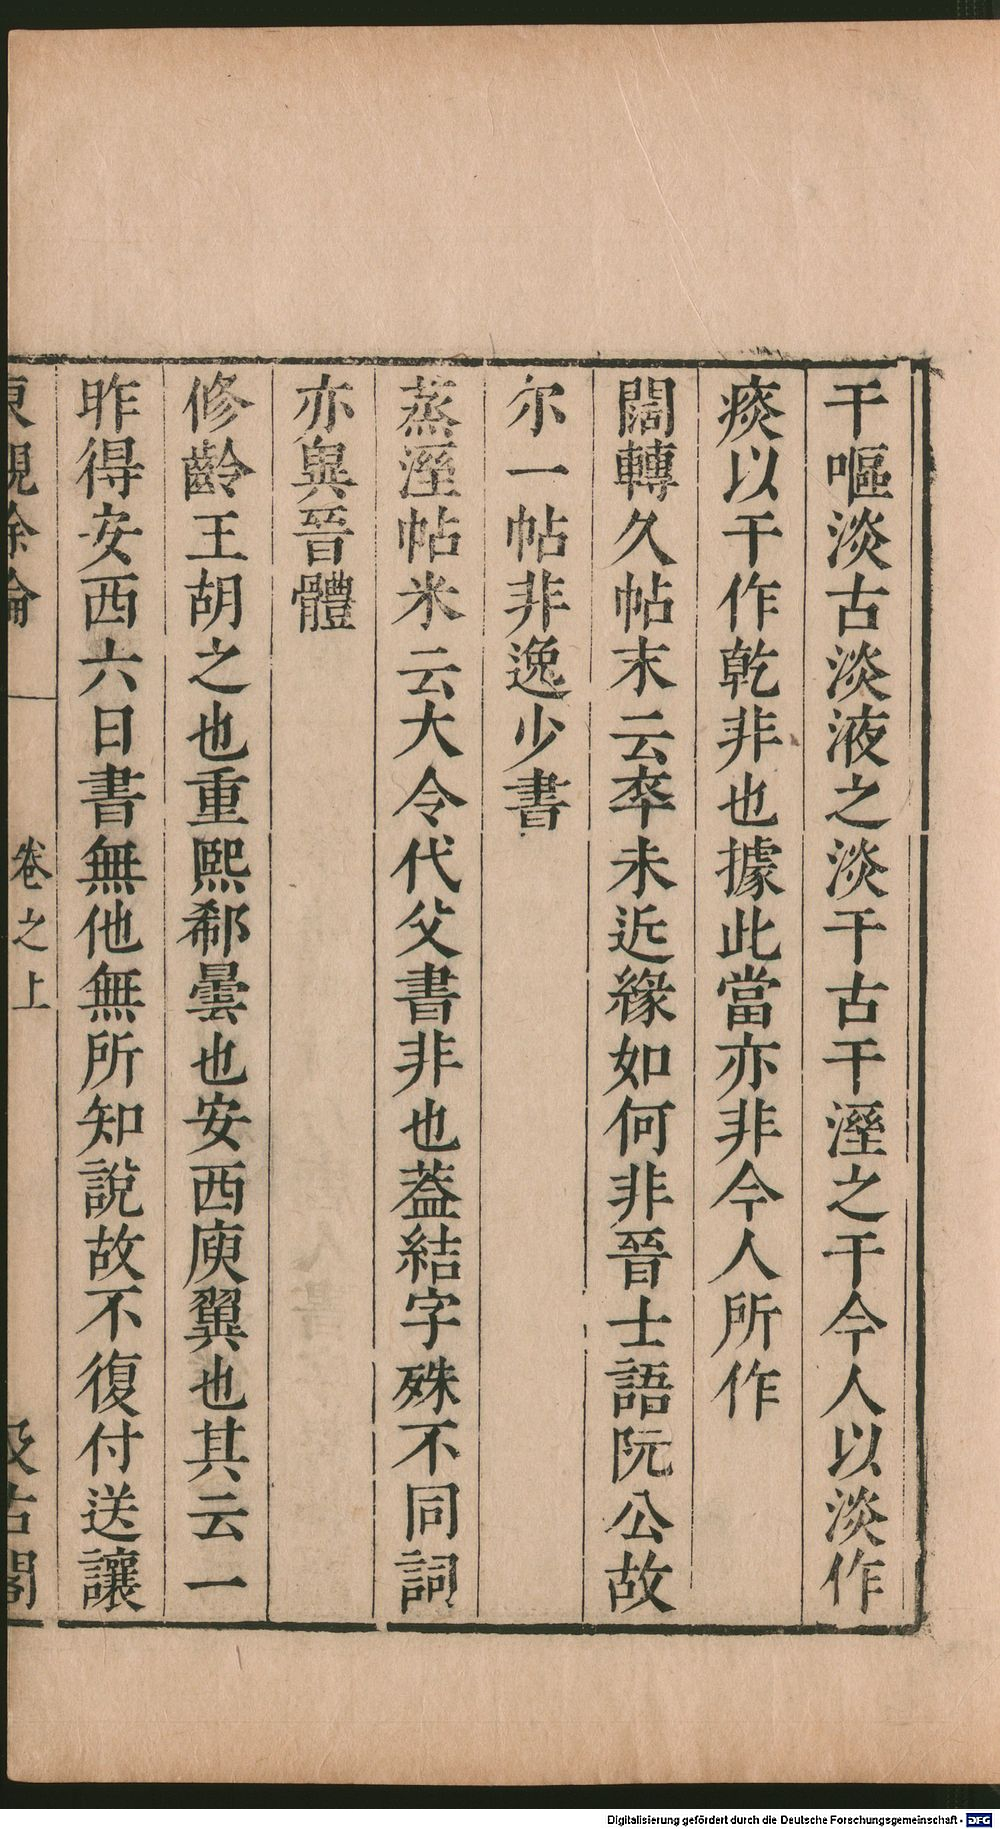 干嘔淡古淡液之淡干古干溼之干今人以淡作
痰以干作乾非也據此當亦非今人所作
闊轉久帖末云卒未近緣如何非晉士語阮公故
尔一帖非逸少書
蒸溼帖米云大令代父書非也葢結字殊不同詞
亦異晉體
修齡王胡之也重熙郗曇也安西庾翼也其云一
昨得安西六日書無他無所知說故不復付送讓
東觀餘論 卷之上 汲古閣
Digitalisierung gefördert durch die Deutsche Forschungsgemeinschaft - DFG